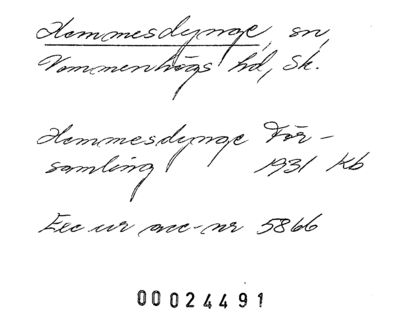 Hemmesdynge, sn,
Vemmenhögs hd, Sk.
Hemmesdynge För-
samling 1931 Kb
Exc ur acc-nr 5866
00024491